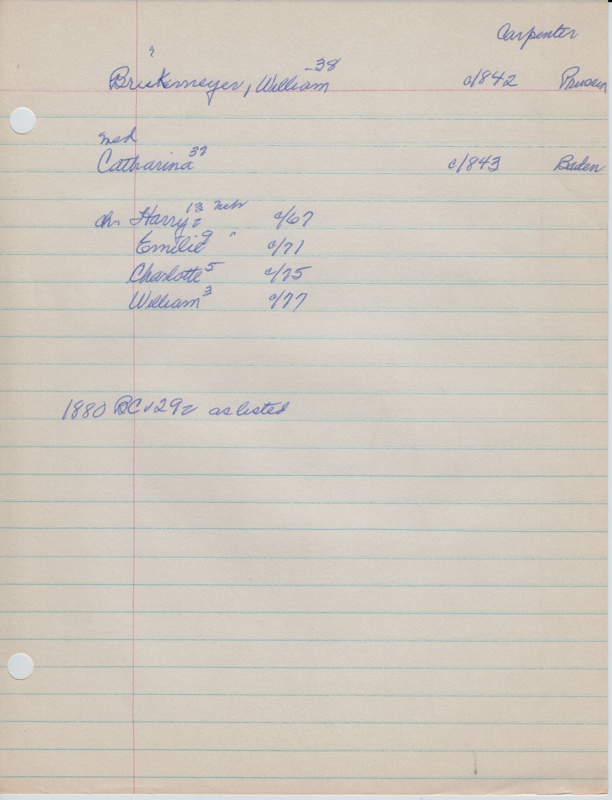 Carpenter
?
Bruckemeyer, William -38 c/1842 Prussia
med
Catharina 37 c/1843 Baden
ch. Harry 13 Neb c/67
Emilie 9 " c/71
Charlotte 5 c/75
William 3 c/77
1880 BC v29 as listed